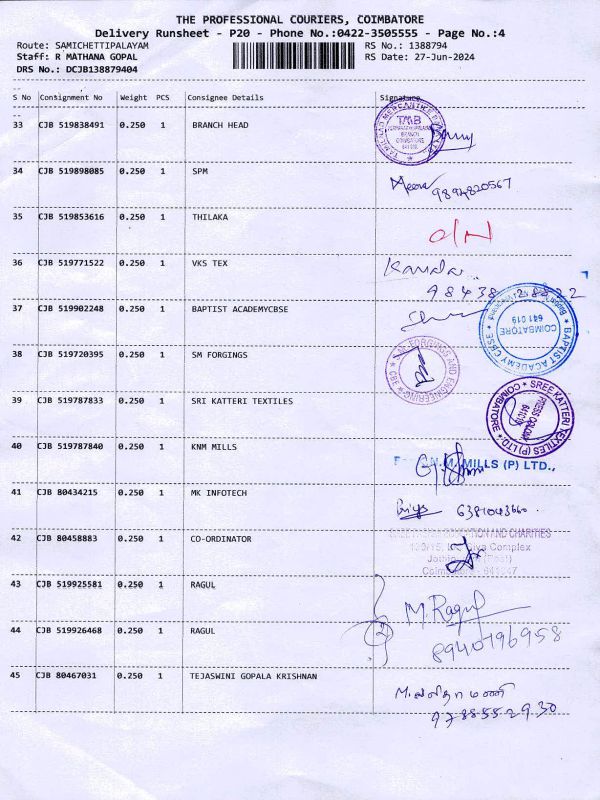 THE PROFESSIONAL COURIERS, COIMBATORE
Delivery Runsheet - P20 - Phone No.:0422-3505555 - Page No.:4
Route: SAMICHETTIPALAYAM RS No.: 1388794
Staff: R MATHANA GOPAL RS Date: 27-Jun-2024
DRS No.: DCJB138879404
S No Consignment No Weight PCS Consignee Details Signature
33 CJB 519838491 0.250 1 BRANCH HEAD
TMB
BRANCH
COIMBATORE
34 CJB 519898085 0.250 1 SPM
9894820567
35 CJB 519853616 0.250 1 THILAKA
36 CJB 519771522 0.250 1 VKS TEX
37 CJB 519902248 0.250 1 BAPTIST ACADEMYCBSE
BAPTIST ACADEMY CBSE
COIMBATORE
641 019
38 CJB 519720395 0.250 1 SM FORGINGS
FORGINGS AND ENGINEERING
CBE
39 CJB 519787833 0.250 1 SRI KATTERI TEXTILES
SREE KATTERI TEXTILES (P) LTD.
COIMBATORE
40 CJB 519787840 0.250 1 KNM MILLS
MILLS (P) LTD.,
41 CJB 80434215 0.250 1 MK INFOTECH
6381043660
42 CJB 80458883 0.250 1 CO-ORDINATOR
AND CHARITIES
Complex
43 CJB 519925581 0.250 1 RAGUL
M. Ragul
44 CJB 519926468 0.250 1 RAGUL
8940796958
45 CJB 80467031 0.250 1 TEJASWINI GOPALA KRISHNAN
9788552930